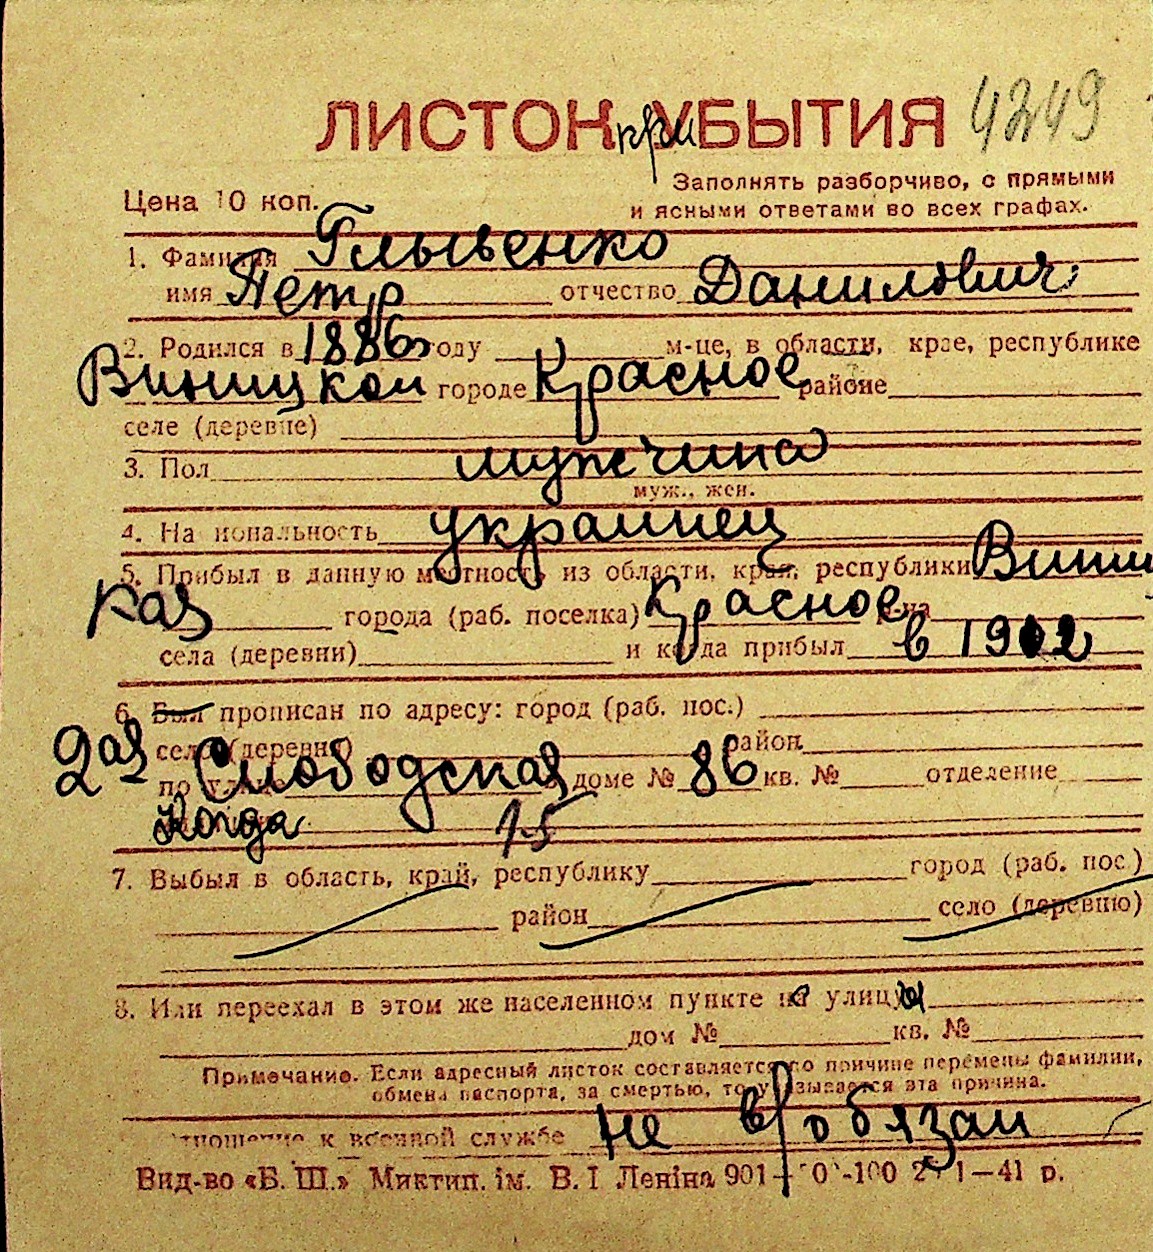 ЛИСТОК при УБЫТИЯ 4249
Заполнять разборчиво, с прямыми
Цена 10 коп. и ясными ответами во всех графах.
1. Фамилия Глывенко
имя Петр отчество Данилович
2. Родился в 1886 году м-це, в области, крае, республике
Виницкой городе Красное районе
селе (деревне)
3. Пол мужчина
муж., жен.
4. Национальность украинец
5. Прибыл в данную местность из области, края, республики Винни
кая города (раб. поселка) Красное р-на
села (деревни) и когда прибыл в 1902
6. Был прописан по адресу: город (раб. пос.)
село (деревня) район
2ая по улице Слободская доме № 86 кв. № отделение
Когда 15
7. Выбыл в область, край, республику город (раб. пос.)
район село (деревню)
8. Или переехал в этом же населенном пункте на улицу
дом № кв. №
Примечание. Если адресный листок составляется по причине перемены фамилии,
обмена паспорта, за смертью, то указывается эта причина.
отношение к военной службе не в/обязан
Вид-во «Б. Ш.» Миктип. ім. В. І Леніна 901 41 р.